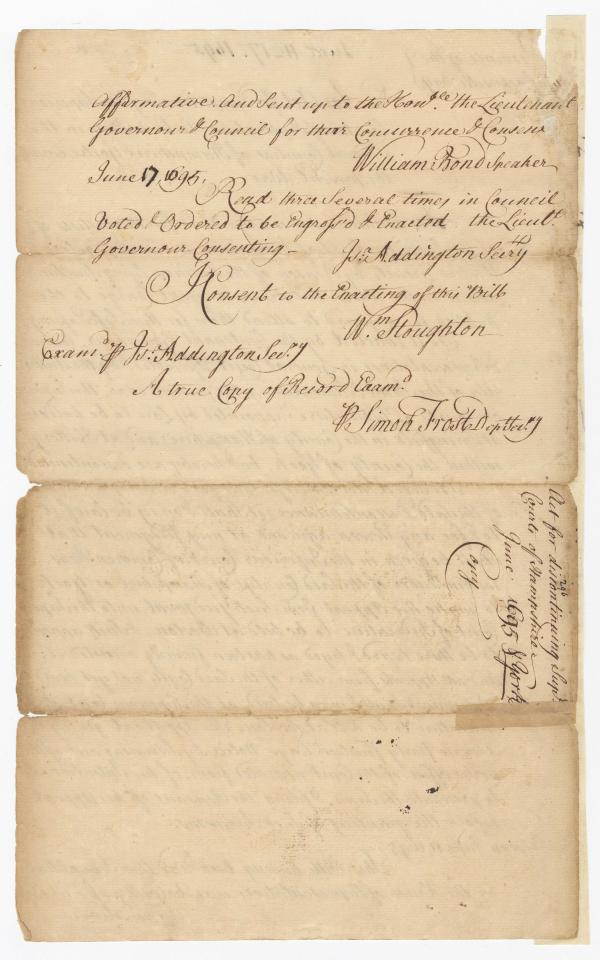 Affirmative. And Sent up to the Hon.ble the Lieutenant
Governour & Council for their Concurrence & Consent
William Bond Speaker
June 17, 1695,
Read three Several times in Council
Voted & Ordered to be Engross'd & Enacted the Lieut.t
Governour Consenting –
Js.a Addington Secr.ty
I Consent to the Enacting of this Bill
Wm. Stoughton
Exam.d p Js.a Addington Sec.ry
A true Copy of Record Exam.d
p Simon Frost Dep.t Sec.ry
Act for discontinuing Sup.r
Courts of Hampshire &
June 1695 & York
Copy